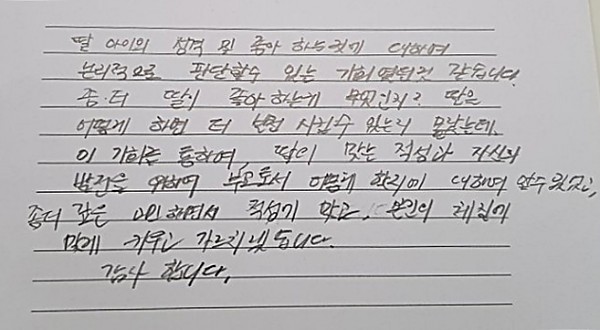 딸 아이의 성격 및 좋아 하는것에 대하여
논리적으로 판단할수 있는 기회였던것 같습니다.
좀.더 딸이 좋아 하는게 무엇인지? 딸은
어떻게 하면 더 발전 시킬수 있는지 몰랐는데,
이 기회를 통하여, 딸이 맞는 적성과 자신의
발전을 위하여 부모로서 어떻게 할지에 대하여 알수 있었고,
좀더 깊은 고민하면서 적성기 맞고, 본인의 체질기
맞게 키우고 가르치겠습니다.
감사 합니다.